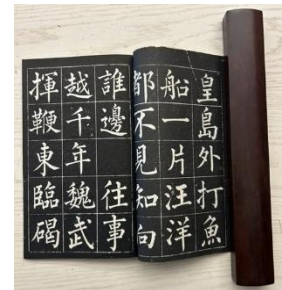 皇島外打魚
船一片汪洋
都不見知向
誰邊往事
越千年魏武
揮鞭東臨碣